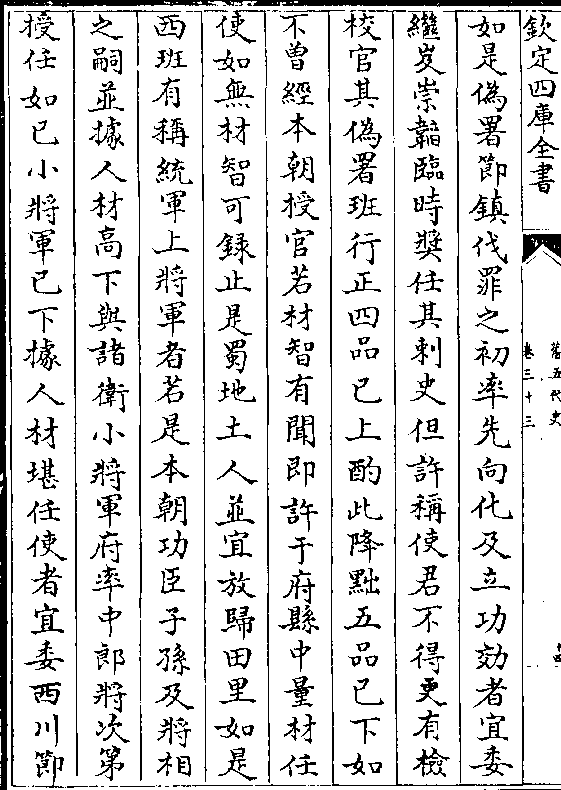 欽定四庫全書
舊五代史
卷三十三
十四
如是偽署節鎮伐罪之初率先向化及立功効者宜委
繼岌崇韜臨時奬任其刺史但許稱使君不得更有檢
校官其偽署班行正四品已上酌此降黜五品已下如
不曾經本朝授官若材智有聞即許于府縣中量材任
使如無材智可録止是蜀地土人並宜放歸田里如是
西班有稱統軍上將軍者若是本朝功臣子孫及將相
之嗣並據人材高下與諸衛小將軍府率中郎將次第
授任如已小將軍已下據人材堪任使者宜委西川節